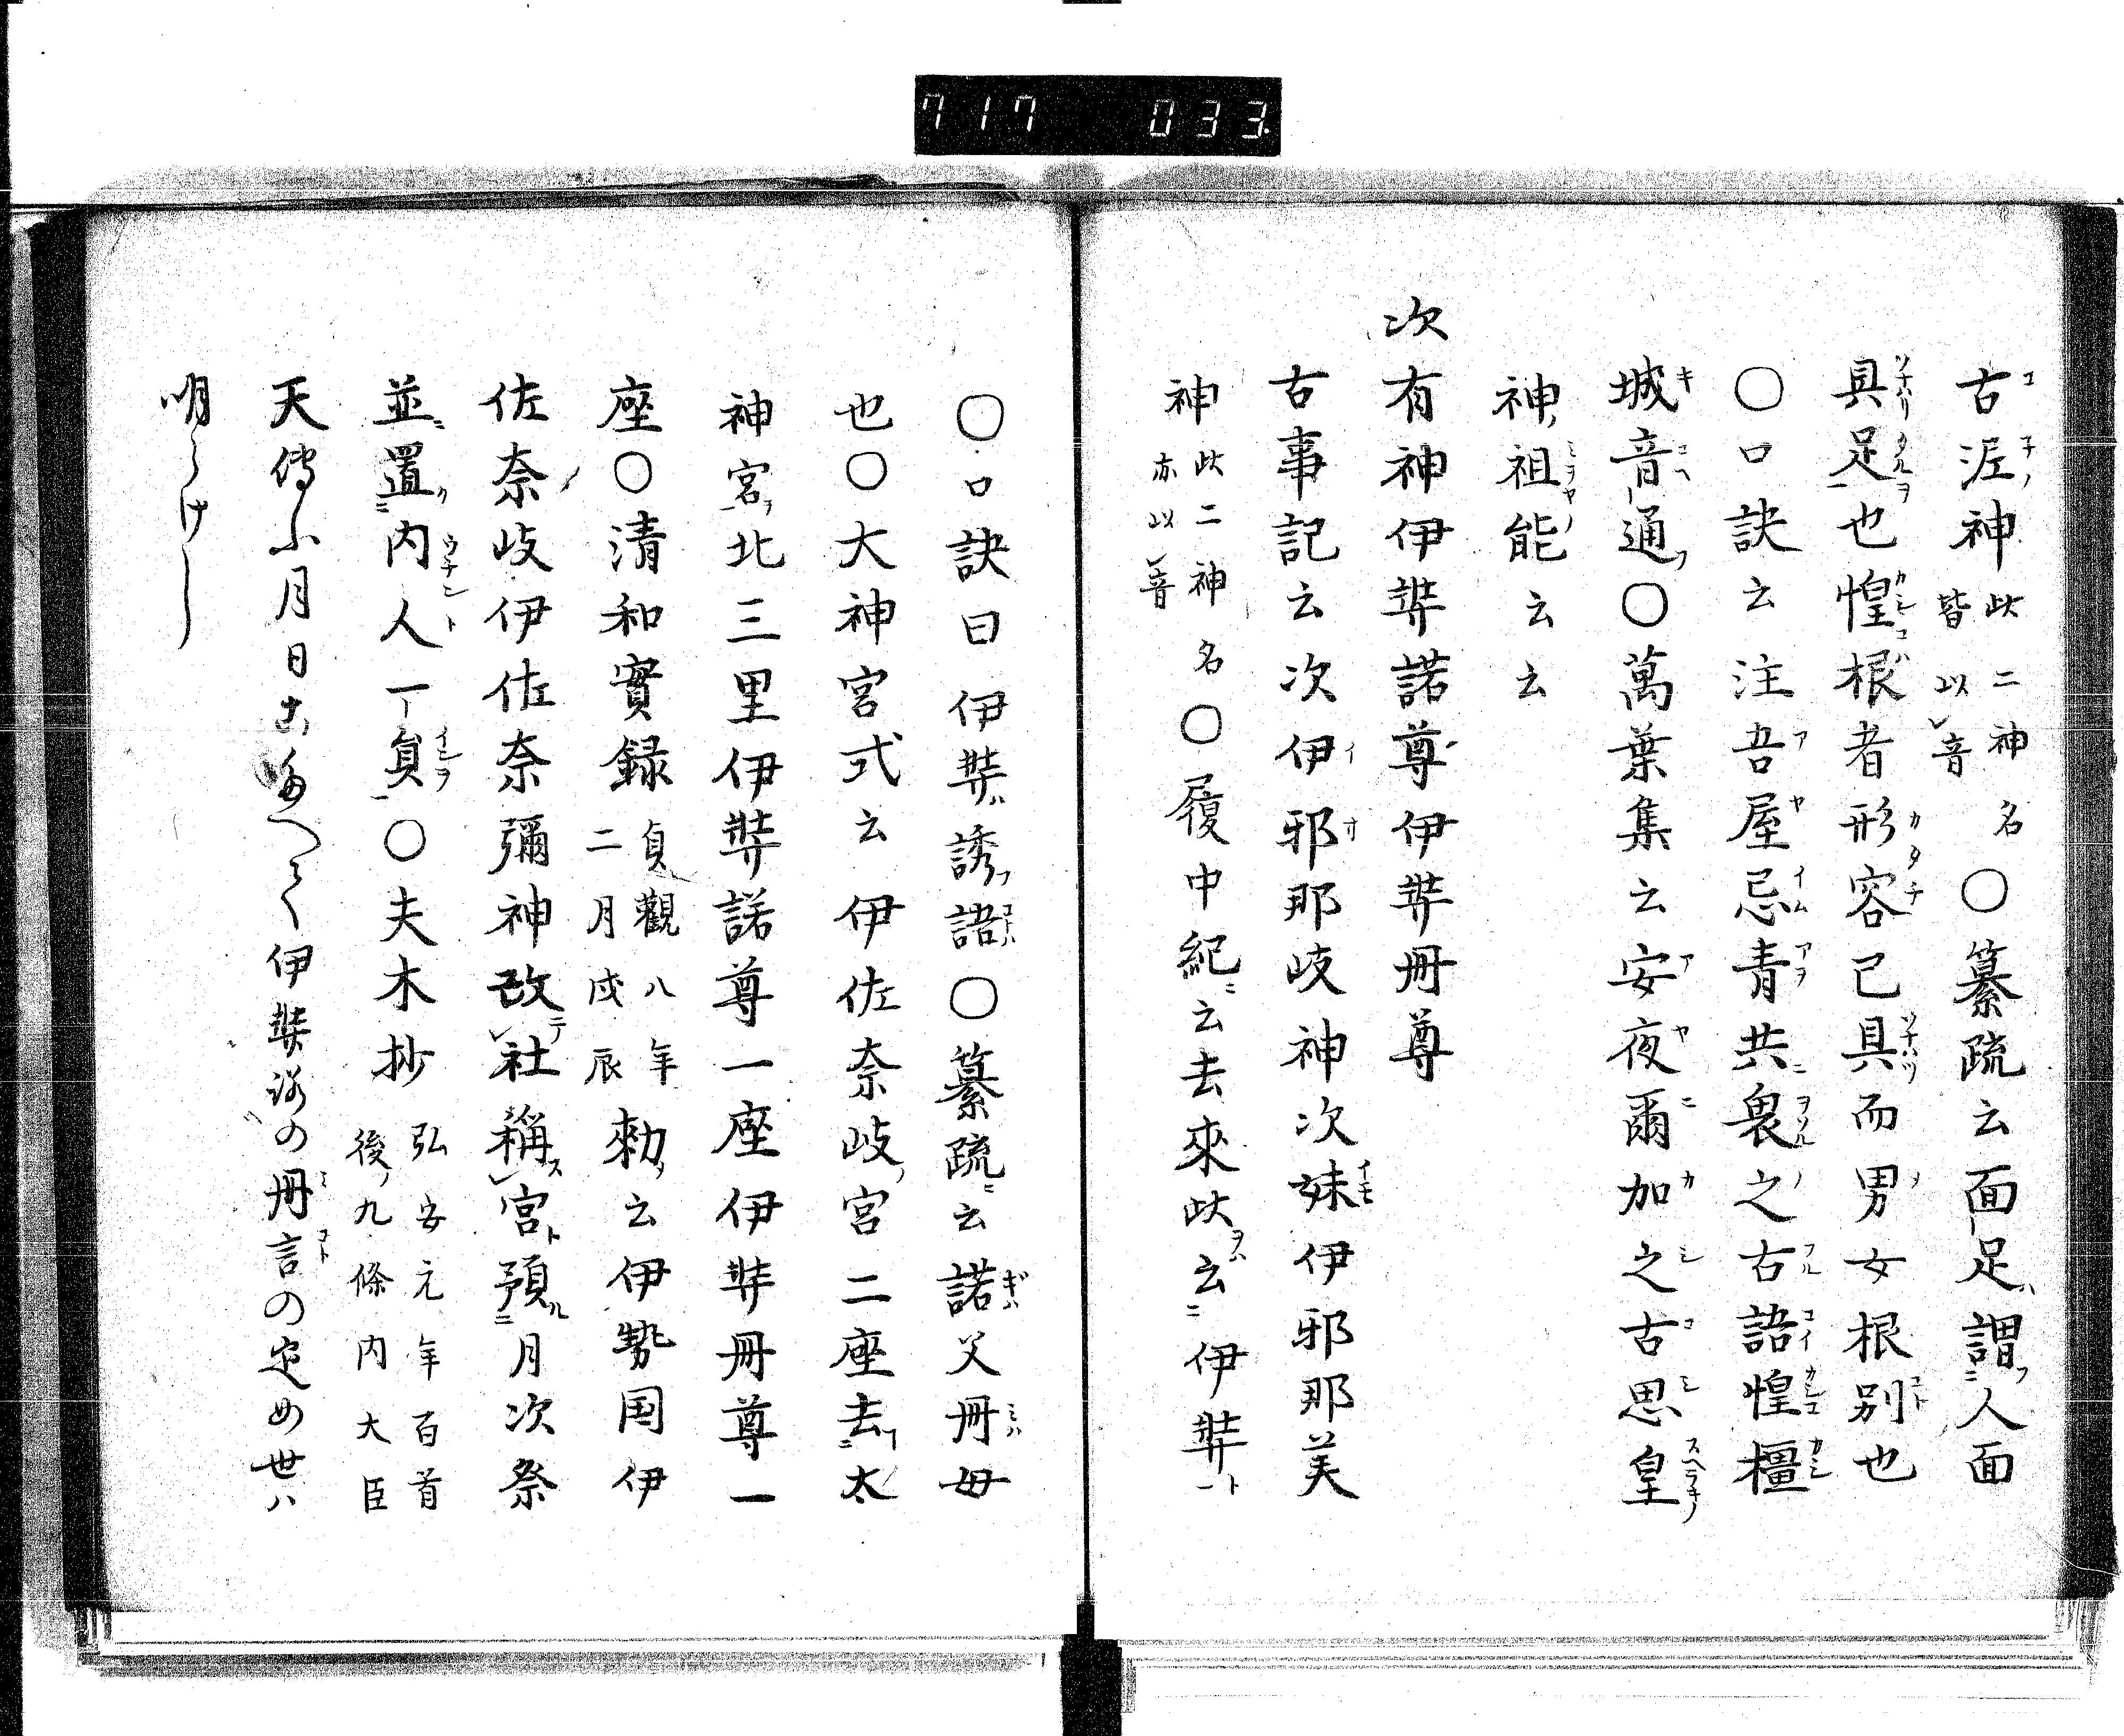 717 033
古泥神此二神名皆以音○纂疏云面足謂人面
具足也惶根者形容已具而男女根別也
○口訣云注吾屋忌青共裏之古語惶橿
城音通○萬葉集云安夜爾加之古思皇
神祖能云云
次有神伊弉諾尊伊弉冊尊
古事記云次伊邪那岐神次妹伊邪那美
神此二神名亦以音○履中紀云去來此云伊弉
○口訣曰伊弉誘語○纂疏云諾父冊母
也○大神宮式云伊佐奈岐宮二座去太
神宮北三里伊弉諾尊一座伊弉冊尊一
座○清和實録貞觀八年二月戊辰勅云伊勢国伊
佐奈岐伊佐奈彌神改社稱宮預月次祭
並置内人一員○夫木抄弘安元年百首後九條内大臣
天傳ふ月日こへて伊弉諾の冊言の定め世ハ
明らけし